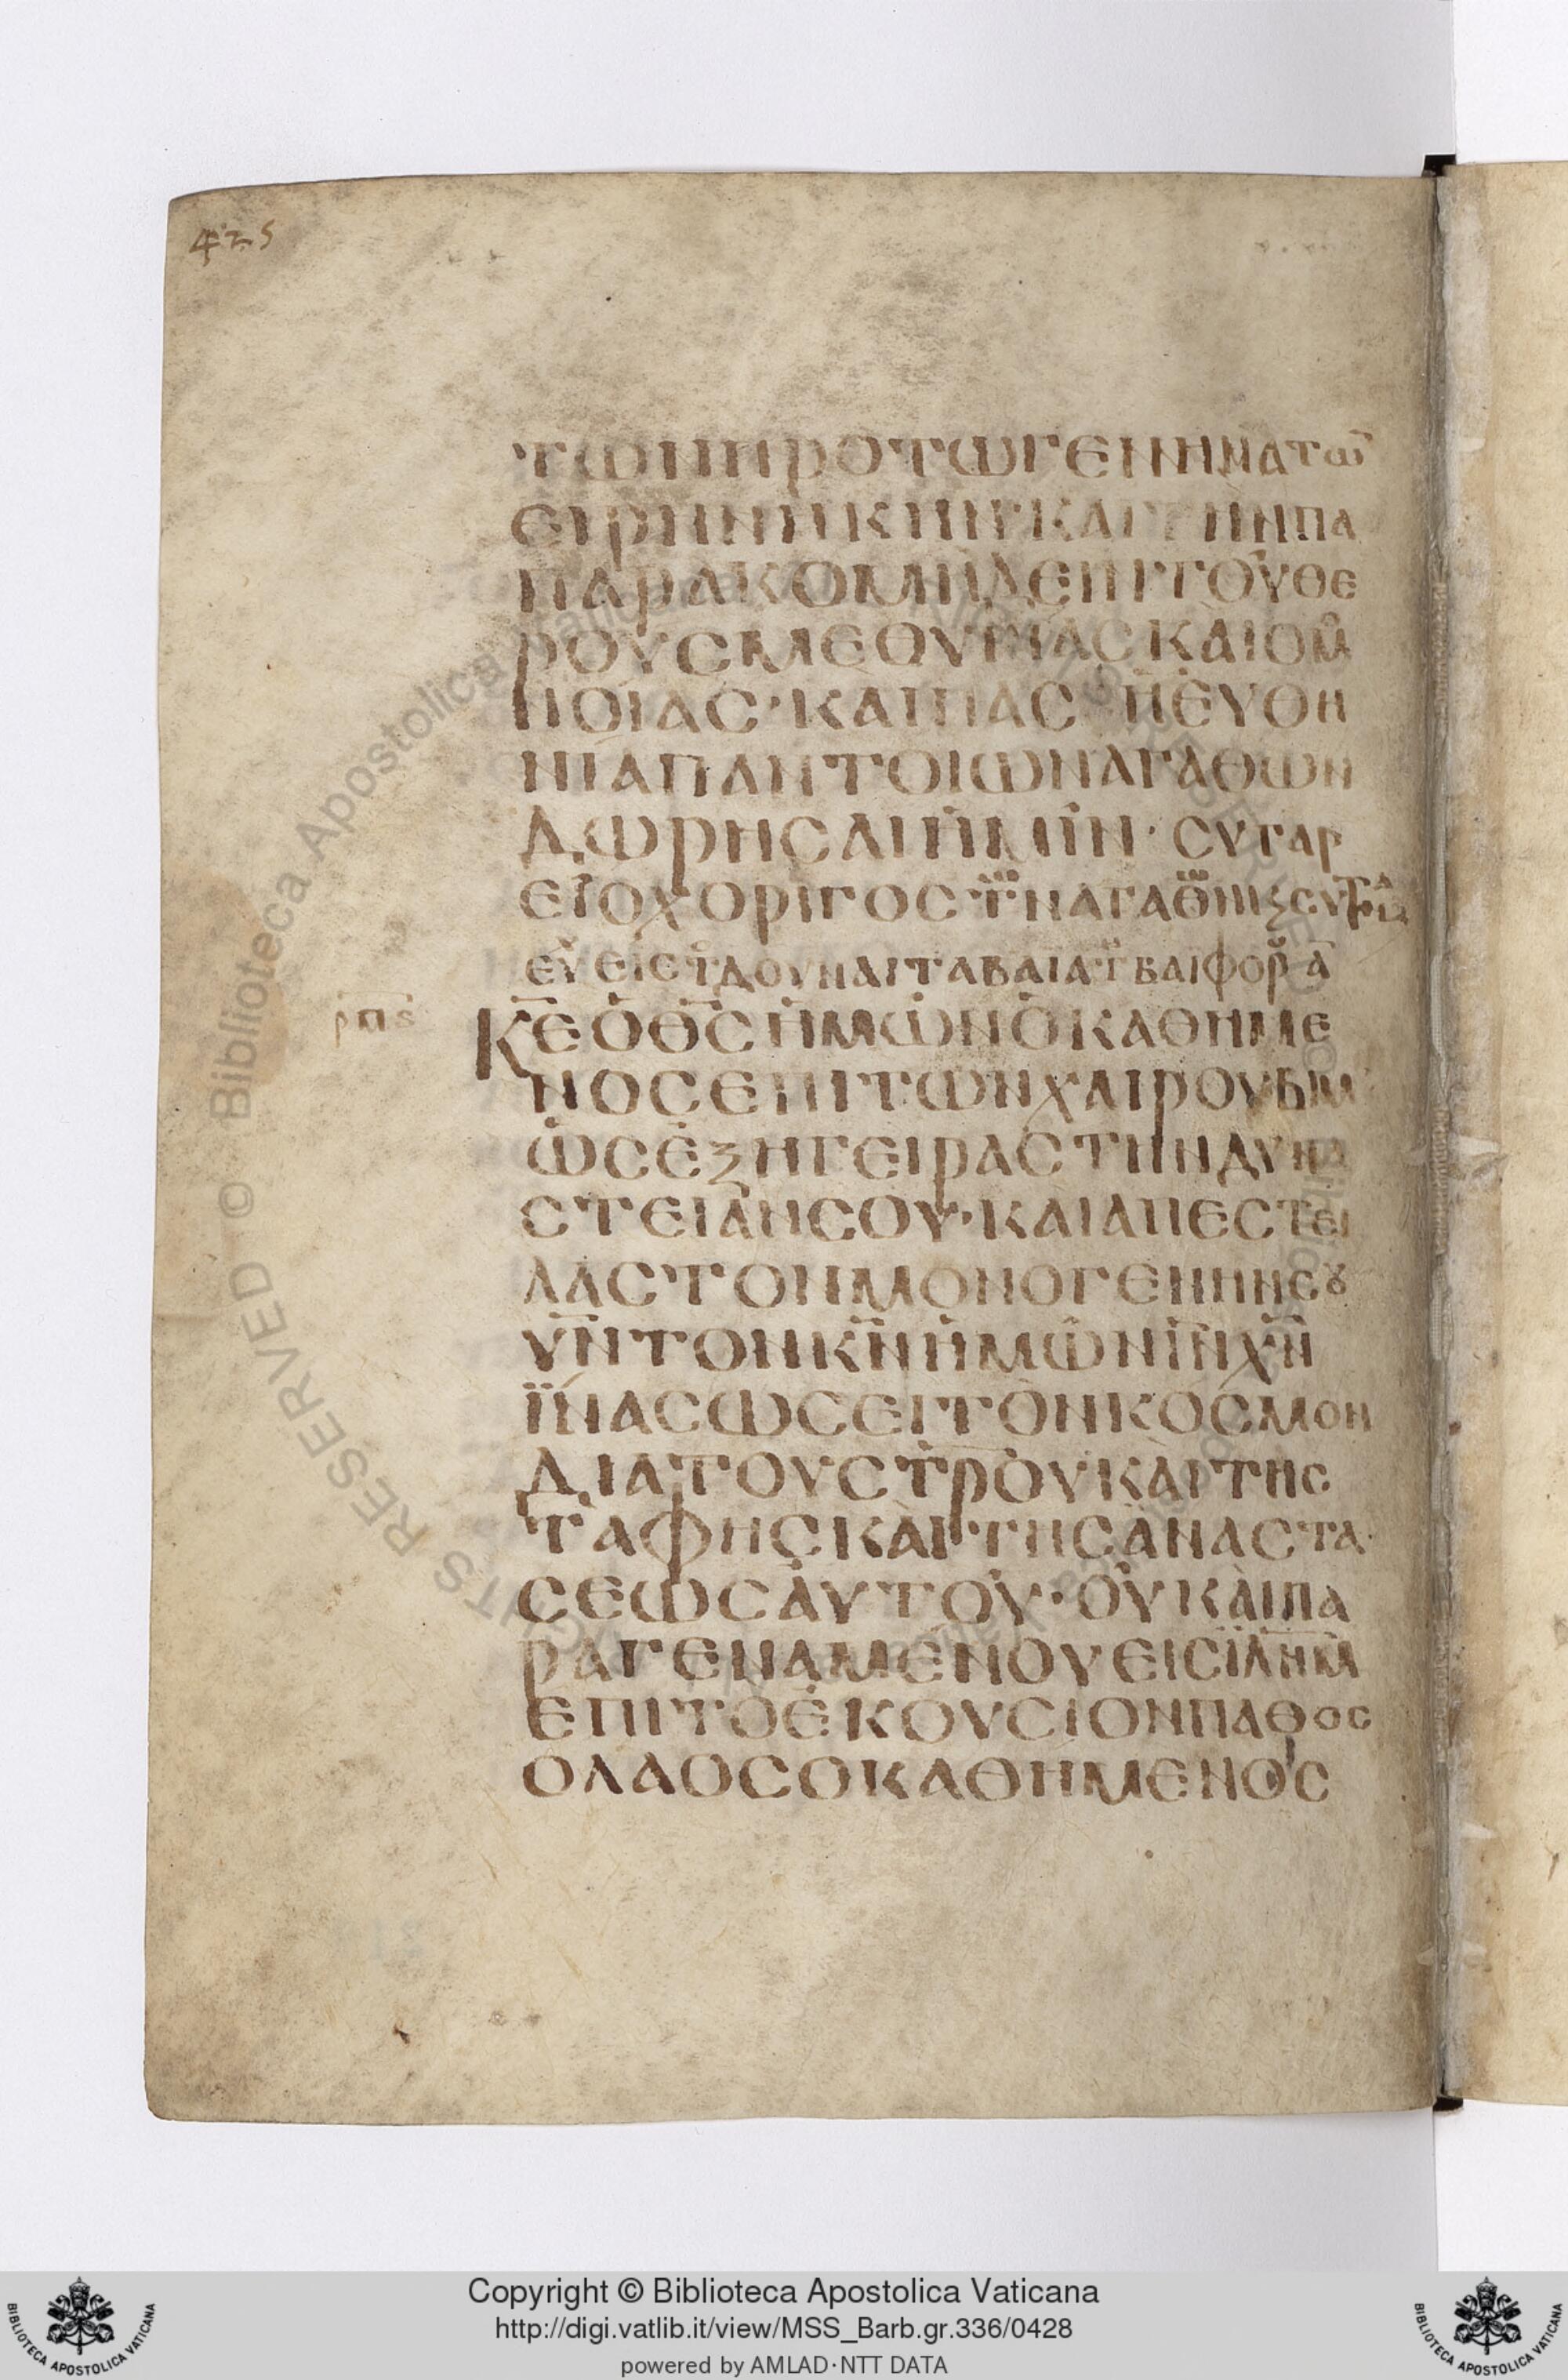 425
ΤΩΝΠΡΟΤΩΓΕΝΝΗΜΑΤω̅
ΕΙΡΗΝΗΚΗΝ·ΚΑΙΤῊΝΠΑ
ΠΑΡΑΚΟΜΗΔΕΠΙΤΟΥΘΕ
ΡΟΥCΜΕΘΥΜΙΑCΚΑΙΟΜ
ΝΟΙΑC·ΚΑΙΠΑC ΗΕΥΘΗ
ΝΙΑΠΑΝΤΟΙΩΝΑΓΑΘΩΝ
ΔΩΡΗCΑΙΗΜΙΝ·CΥΓΑΡ
ΕΙΟΧΟΡΙΓΟC
ΕΥ ΕΙC ΤΔΟΥΝΑΙΤΑΒΑΙΑΤ ΒΑΙΦΟΡ Α
ρπϛ
Κ̅Ε̅ΟΘ̅C̅ΗΜΩΝΟΚΑΘΗΜΕ
ΝΟCΕΠΙΤΩΝΧΑΙΡΟΥΒΙΜ
ΩCΕΞΗΓΕΙΡΑCΤΗΝΔΥΝΑ
CΤΕΙΑΝCΟΥ·ΚΑΙΑΠΕCΤΕΙ
ΛΑCΤΟΝΜΟΝΟΓΕΝΗΝCȣ
Υ̅Ν̅ΤΟΝΚ̅Ν̅ΗΜΩΝΙ̅Ν̅Χ̅Ν̅
ΪΝΑCΩCΕΙΤΟΝΚΟCΜΟΝ
ΔΙΑΤΟΥCΤ̅Ρ̅ΟΥΚΑΙΤΗC
ΤΑΦΗCΚΑΙΤΗCΑΝΑCΤΑ
CΕΩCΑΥΤΟΥ·ΟΥΚΑΙΠΑ
ΡΑΓΕΝΑΜΕΝΟΥΕΙCΪΛ̅Η̅Μ̅
ΕΠΙΤΟΕΚΟΥCΙΟΝΠΑΘΟC
ΟΛΑΟCΟΚΑΘΗΜΕΝΟC
© Biblioteca Apostolica Vaticana
Copyright © Biblioteca Apostolica Vaticana
http://digi.vatlib.it/view/MSS_Barb.gr.336/0428
powered by AMLAD·NTT DATA
BIBLIOTECA APOSTOLICA VATICANA
BIBLIOTECA APOSTOLICA VATICANA